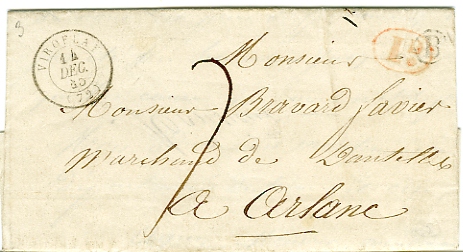 VIROFLAY
14
DEC.
(72)
Monsieur
Monsieur Bravard Xavier
Marchand de Dantelles
a Arlanc
7
1D
B